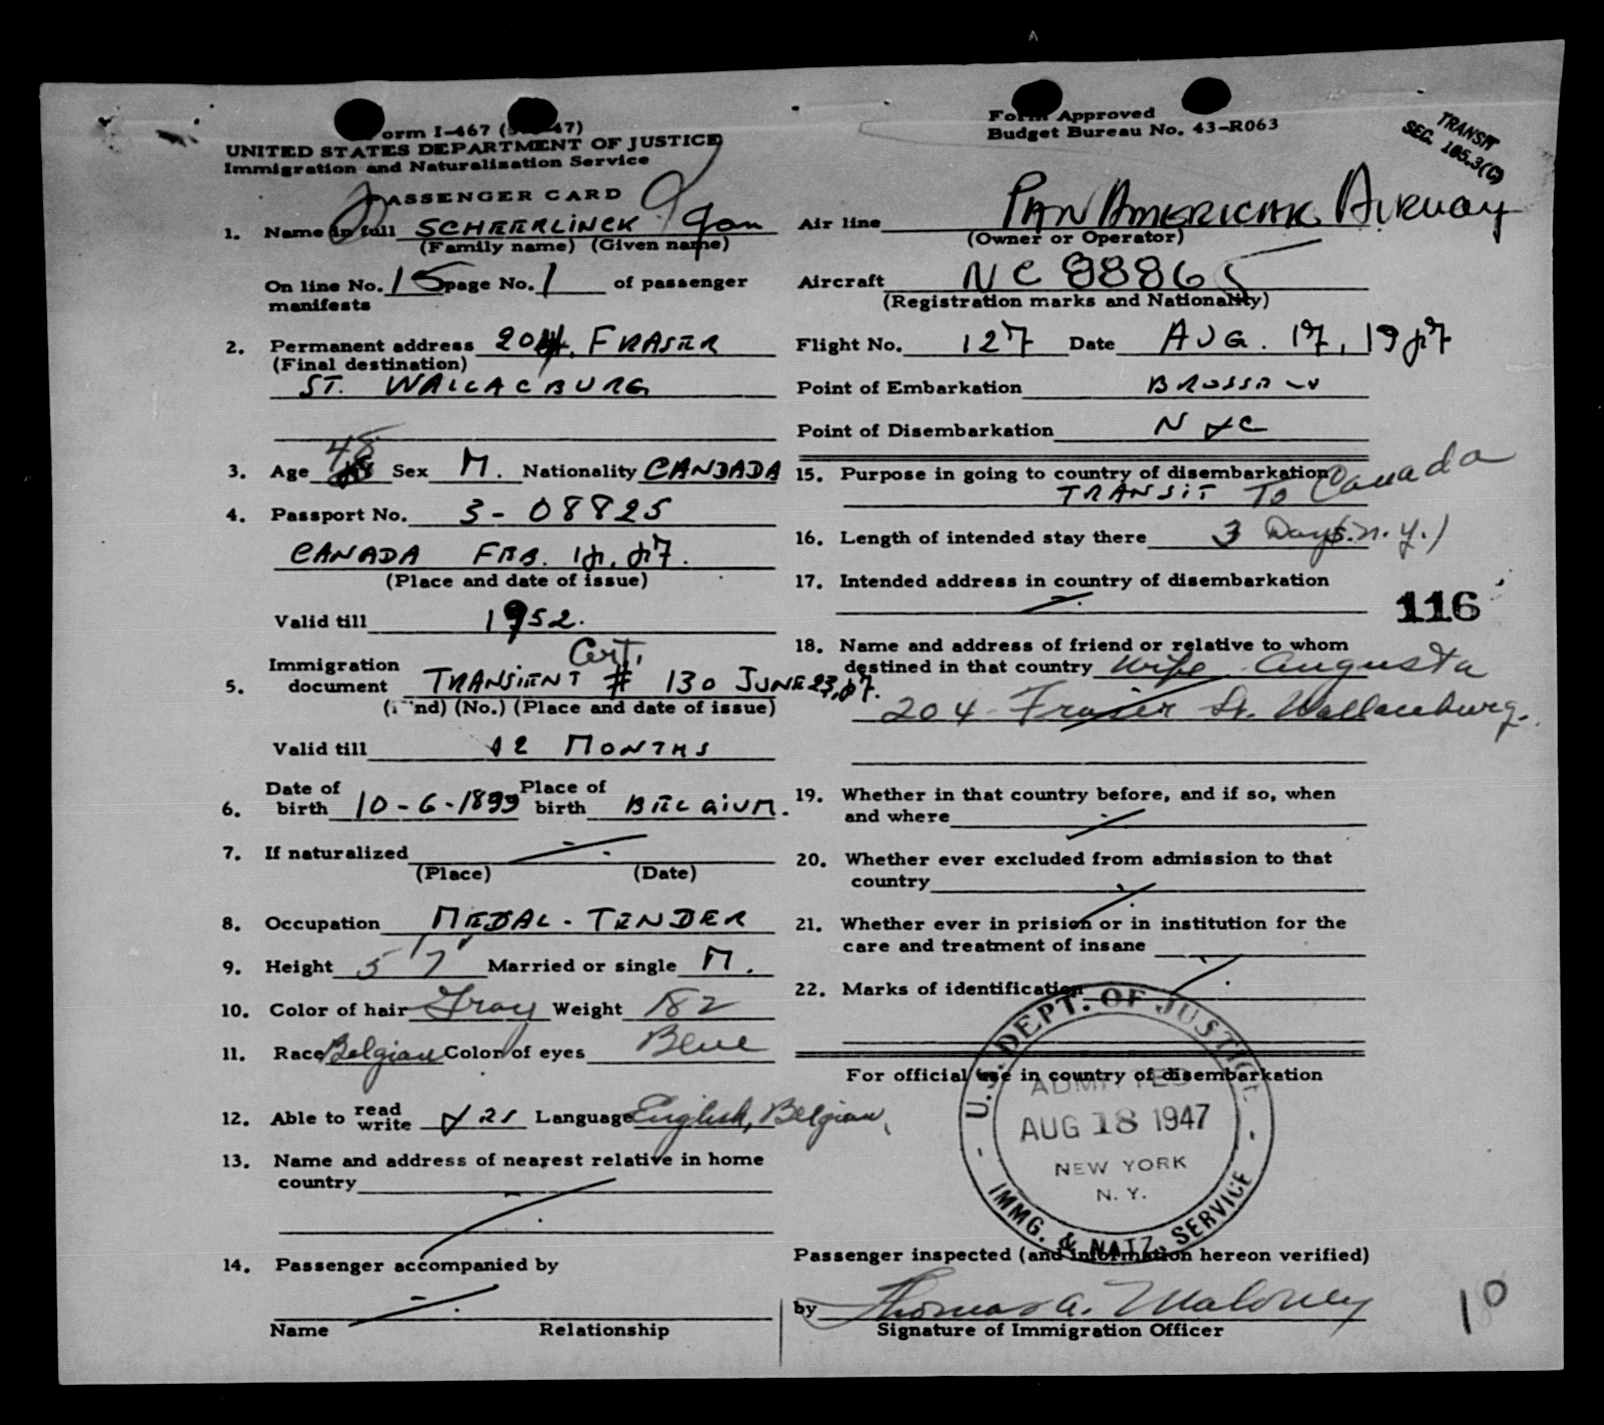 Form I-467 ( 47)
UNITED STATES DEPARTMENT OF JUSTICE
Immigration and Naturalization Service
PASSENGER CARD
1. Name in full SCHEERLINCK
(Family name) (Given name)
On line No. 15 page No. 1 of passenger
manifests
2. Permanent address 204, FRASER
(Final destination)
ST. WALLACBURG
3. Age 48 Sex M. Nationality CANDADA
4. Passport No. 3-08825
CANADA FEB. 14. 47.
(Place and date of issue)
Valid till 1952.
Cert.
Immigration
5. document TRANSIENT # 130 JUNE 23, 47.
(Kind) (No.) (Place and date of issue)
Valid till 12 MONTHS
Date of Place of
6. birth 10-6-1899 birth BELGIUM.
7. If naturalized
(Place) (Date)
8. Occupation MEDAL-TENDER
9. Height 5'7" Married or single M.
10. Color of hair Gray Weight 182
11. Race Belgian Color of eyes Blue
12. Able to read write YES Language English, Belgian,
13. Name and address of nearest relative in home
country
14. Passenger accompanied by
Name Relationship
Form Approved
Budget Bureau No. 43-R063
TRANSIT
SEC. 105.3(C)
Air line PAN AMERICAN AIRWAY
(Owner or Operator)
Aircraft NC 88865
(Registration marks and Nationality)
Flight No. 127 Date AUG. 17, 1947
Point of Embarkation
Point of Disembarkation NYC
15. Purpose in going to country of disembarkation
TRANSIT To Canada
16. Length of intended stay there 3 Days (n.y.)
17. Intended address in country of disembarkation
116
18. Name and address of friend or relative to whom
destined in that country wife Augusta
204 Fraser St. Wallaceburg.
19. Whether in that country before, and if so, when
and where
20. Whether ever excluded from admission to that
country
21. Whether ever in prision or in institution for the
care and treatment of insane
22. Marks of identification
For official use in country of disembarkation
U.S. DEPT. OF JUSTICE
ADMITTED
AUG 18 1947
NEW YORK
N. Y.
IMMG. & NATZ. SERVICE
Passenger inspected (and information hereon verified)
by Thomas A. Maloney
Signature of Immigration Officer
10